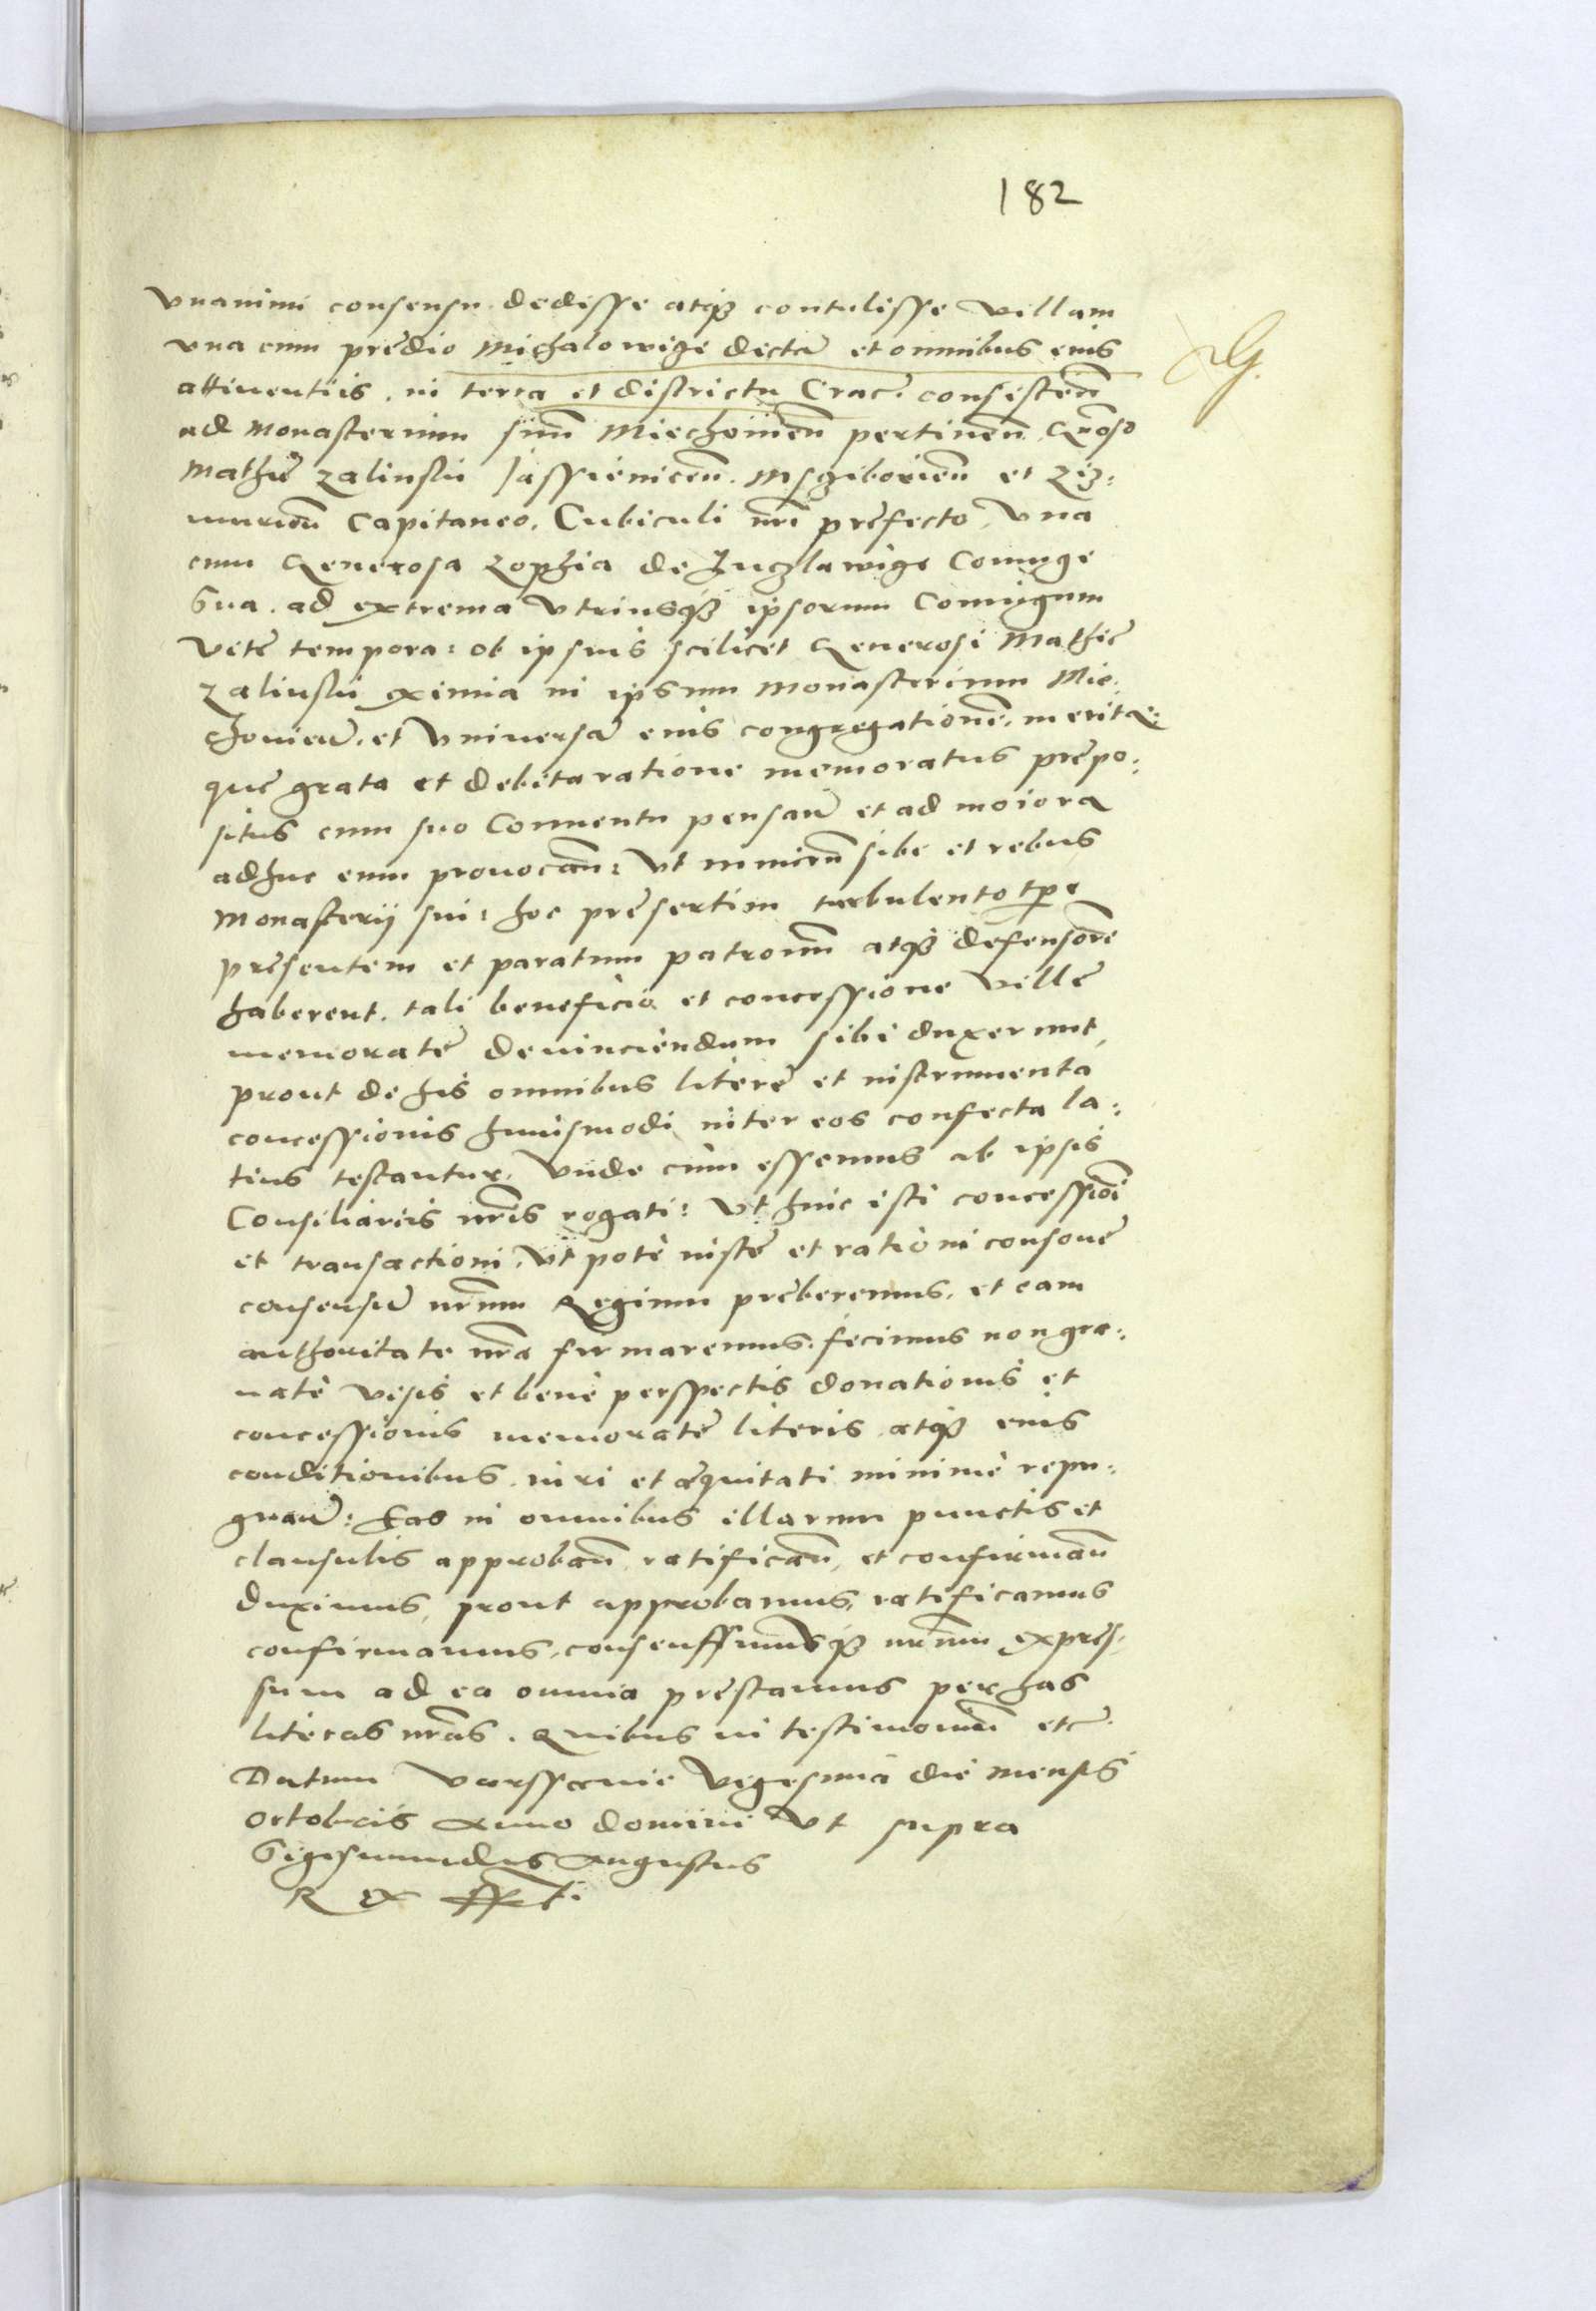 182
vnanimi consensu dedisse atqꝫ contulisse villam
vna cum prędio Michalowicze dictā et omnibus eius
attinentiis. in terra et districtu Crac̄. consisteñ
ad Monasterium suū Miechouieñ pertineñ. Gnōso
Mathię Zalinskii Jassieniceñ. Msczibovieñ et
Capitaneo. Cubiculi nr̄i pręfecto, vna
cum Generosa Zophia de Coniuge
Sua. ad extrema vtriusqꝫ ipsorum Coniugum
vitę tempora: ob ipsius scilicet Generosi Mathię
Zalinskii eximia in ipsum Monasterium Mie:
chouień. et vniversā eius congregationē. merita:
quę grata et debita ratione memoratus prępo:
situs cum suo Conuentu pensań et ad maiora
adhuc eum prouocañ: Vt nimirū sibi et rebus
Monasterij sui: hoc pręsertim turbulento tp̄e
pręsentem et paratum patronū atqꝫ defensorē
haberent. tali beneficio et concessione villę
memoratę deuinciendum sibi duxerunt,
prout de his omnibus literę et instrumenta
concessionis huiusmodi inter eos confecta la:
tius testantur. Vnde cum essemus ab ipsis
Consiliariis nr̄is rogati: Vt huic isti concessiōi
et transactioni, vt potè iustę et rationi consonę
consensū nr̄um Regium pręberemus. et eam
authoritate nr̄a firmaremus. fecimus non gra:
uatè visis et benè perspectis donationis et
concessionis memoratę literis atqꝫ eius
conditionibus. iuri et ęquitati minimè repu:
gnań: Eas in omnibus illarum punctis et
clausulis approbañ ratificañ, et confirmañ
duximus, prout approbamus, ratificamus
confirmamus, consenssumqꝫ nr̄um expres:
sum ad ea omnia pręstamus per has
literas nr̄as. Quibus in testimoniū etc̄.
Datum Varssauię Vigesima die Mensis
Octobris Anno domini vt supra
Sigismundus Augustus
Rex sspt.